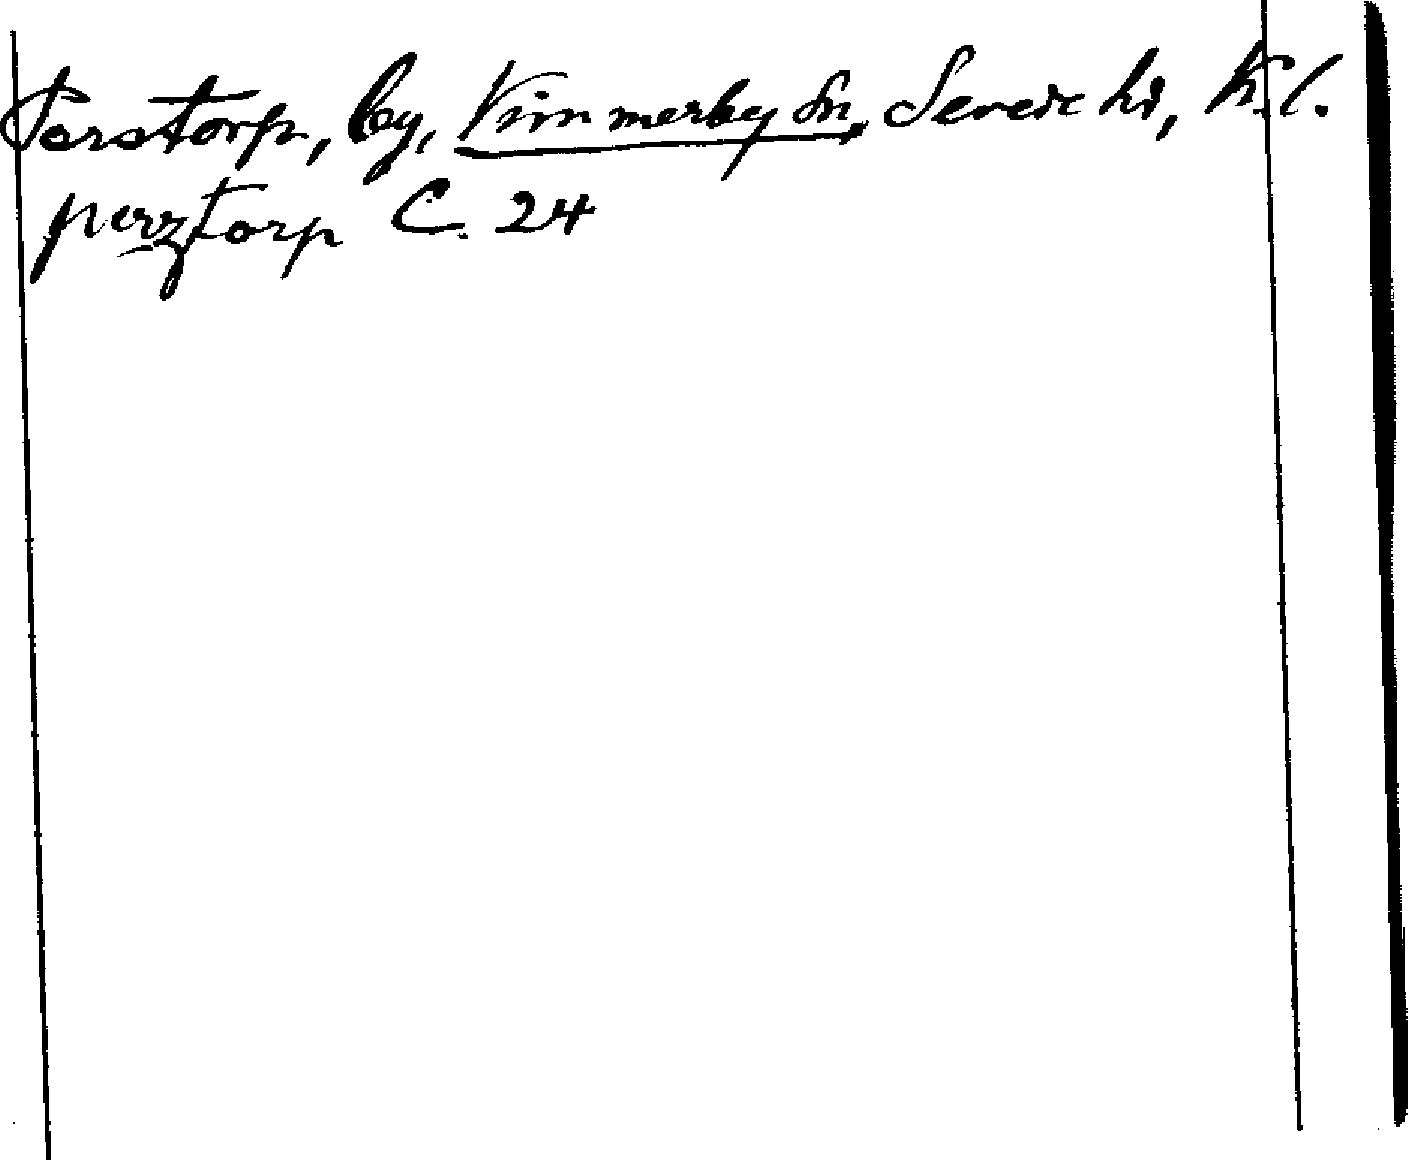 Perstorp, by, Vimmerby sn, Sevede hd, K.l.
perztorp C. 24